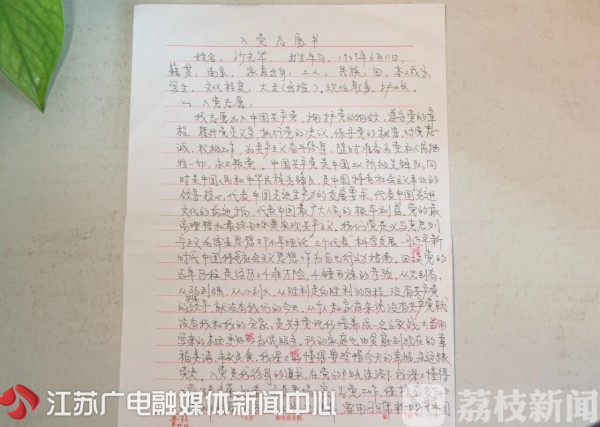 入党志愿书
姓名: 沙元华 出生年月, 1929年6月11日,
籍贯, 南京, 家庭出身: 工人, 民族, 回, 本人成分,
学生, 文化程度, 大专
一、入党志愿:
我志愿加入中国共产党, 拥护党的纲领, 遵守党的章
程, 履行党员义务, 执行党的决议, 保守党的秘密, 对党忠
诚, 积极工作, 为共产主义奋斗终身, 随时准备为党和人民牺
牲一切, 永不叛党。中国共产党是中国工人阶级先锋队, 同
时是中国人民和中华民族先锋队, 是中国特色社会主义事业的
领导核心, 代表中国先进生产力的发展要求, 代表中国先进
文化的前进方向, 代表中国最广大人民的根本利益。党的最
高理想和最终目标是实现共产主义。我们党是以马克思列
宁主义毛泽东思想邓小平理论“三个代表”科学发展
时代中国特色社会主义思想作为自己行动指南。回顾党的
百年历程, 是经历了千难万险, 千锤百炼的考验, 从无到有,
从弱到强, 从小到大, 从胜利走向胜利的历程, 没有共产党
的领导, 就没有我们的今天, 从个人和家庭来说, 没有共产党就
没有我和我的全家, 是共产党把我培养成一名
学来的本领 为伤
福美满, 丰衣足食, 我深深的懂得要珍惜今天的幸福, 永远跟
党走。入党是我终身的追求, 在党的 我深深懂得
江苏广电融媒体新闻中心
荔枝新闻